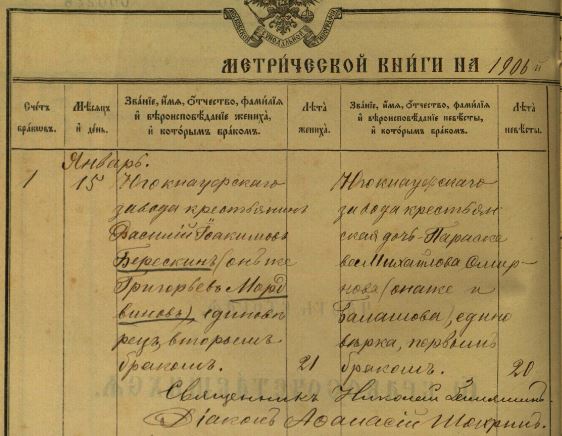 МЕТРИ́ЧЕСКОЙ КНИ́ГИ НА 1906й
Сче́тъ бра́ковъ.
Мѣ́сяцъ и҆ день.
Зва́нїе, и҆́мя, ѻ҆́тчество, фами́лїя и҆ вѣроисповѣ́данїе жениха̀, и҆ кото́рымъ бра́комъ.
Лѣ́та жениха̀.
Зва́нїе, и҆́мя, ѻ҆́тчество, фами́лїя и҆ вѣроисповѣ́данїе невѣ́сты, и҆ кото́рымъ бра́комъ.
Лѣ́та невѣ́сты.
Январь.
1
15
Югокнауфскаго
завода крестьянинъ
Василій Іоакимовъ
Берескинъ (онъ же
Григорьевъ Мард
виновъ), единовѣ
рецъ, вторымъ
бракомъ.
21
Югокнауфскаго
завода крестьян
ская дочь Параске
ва Михайлова Смир
нова (она же и
Балашова), едино
вѣрка, первымъ
бракомъ.
20
Священникъ Николай
Діаконъ Аѳанасій